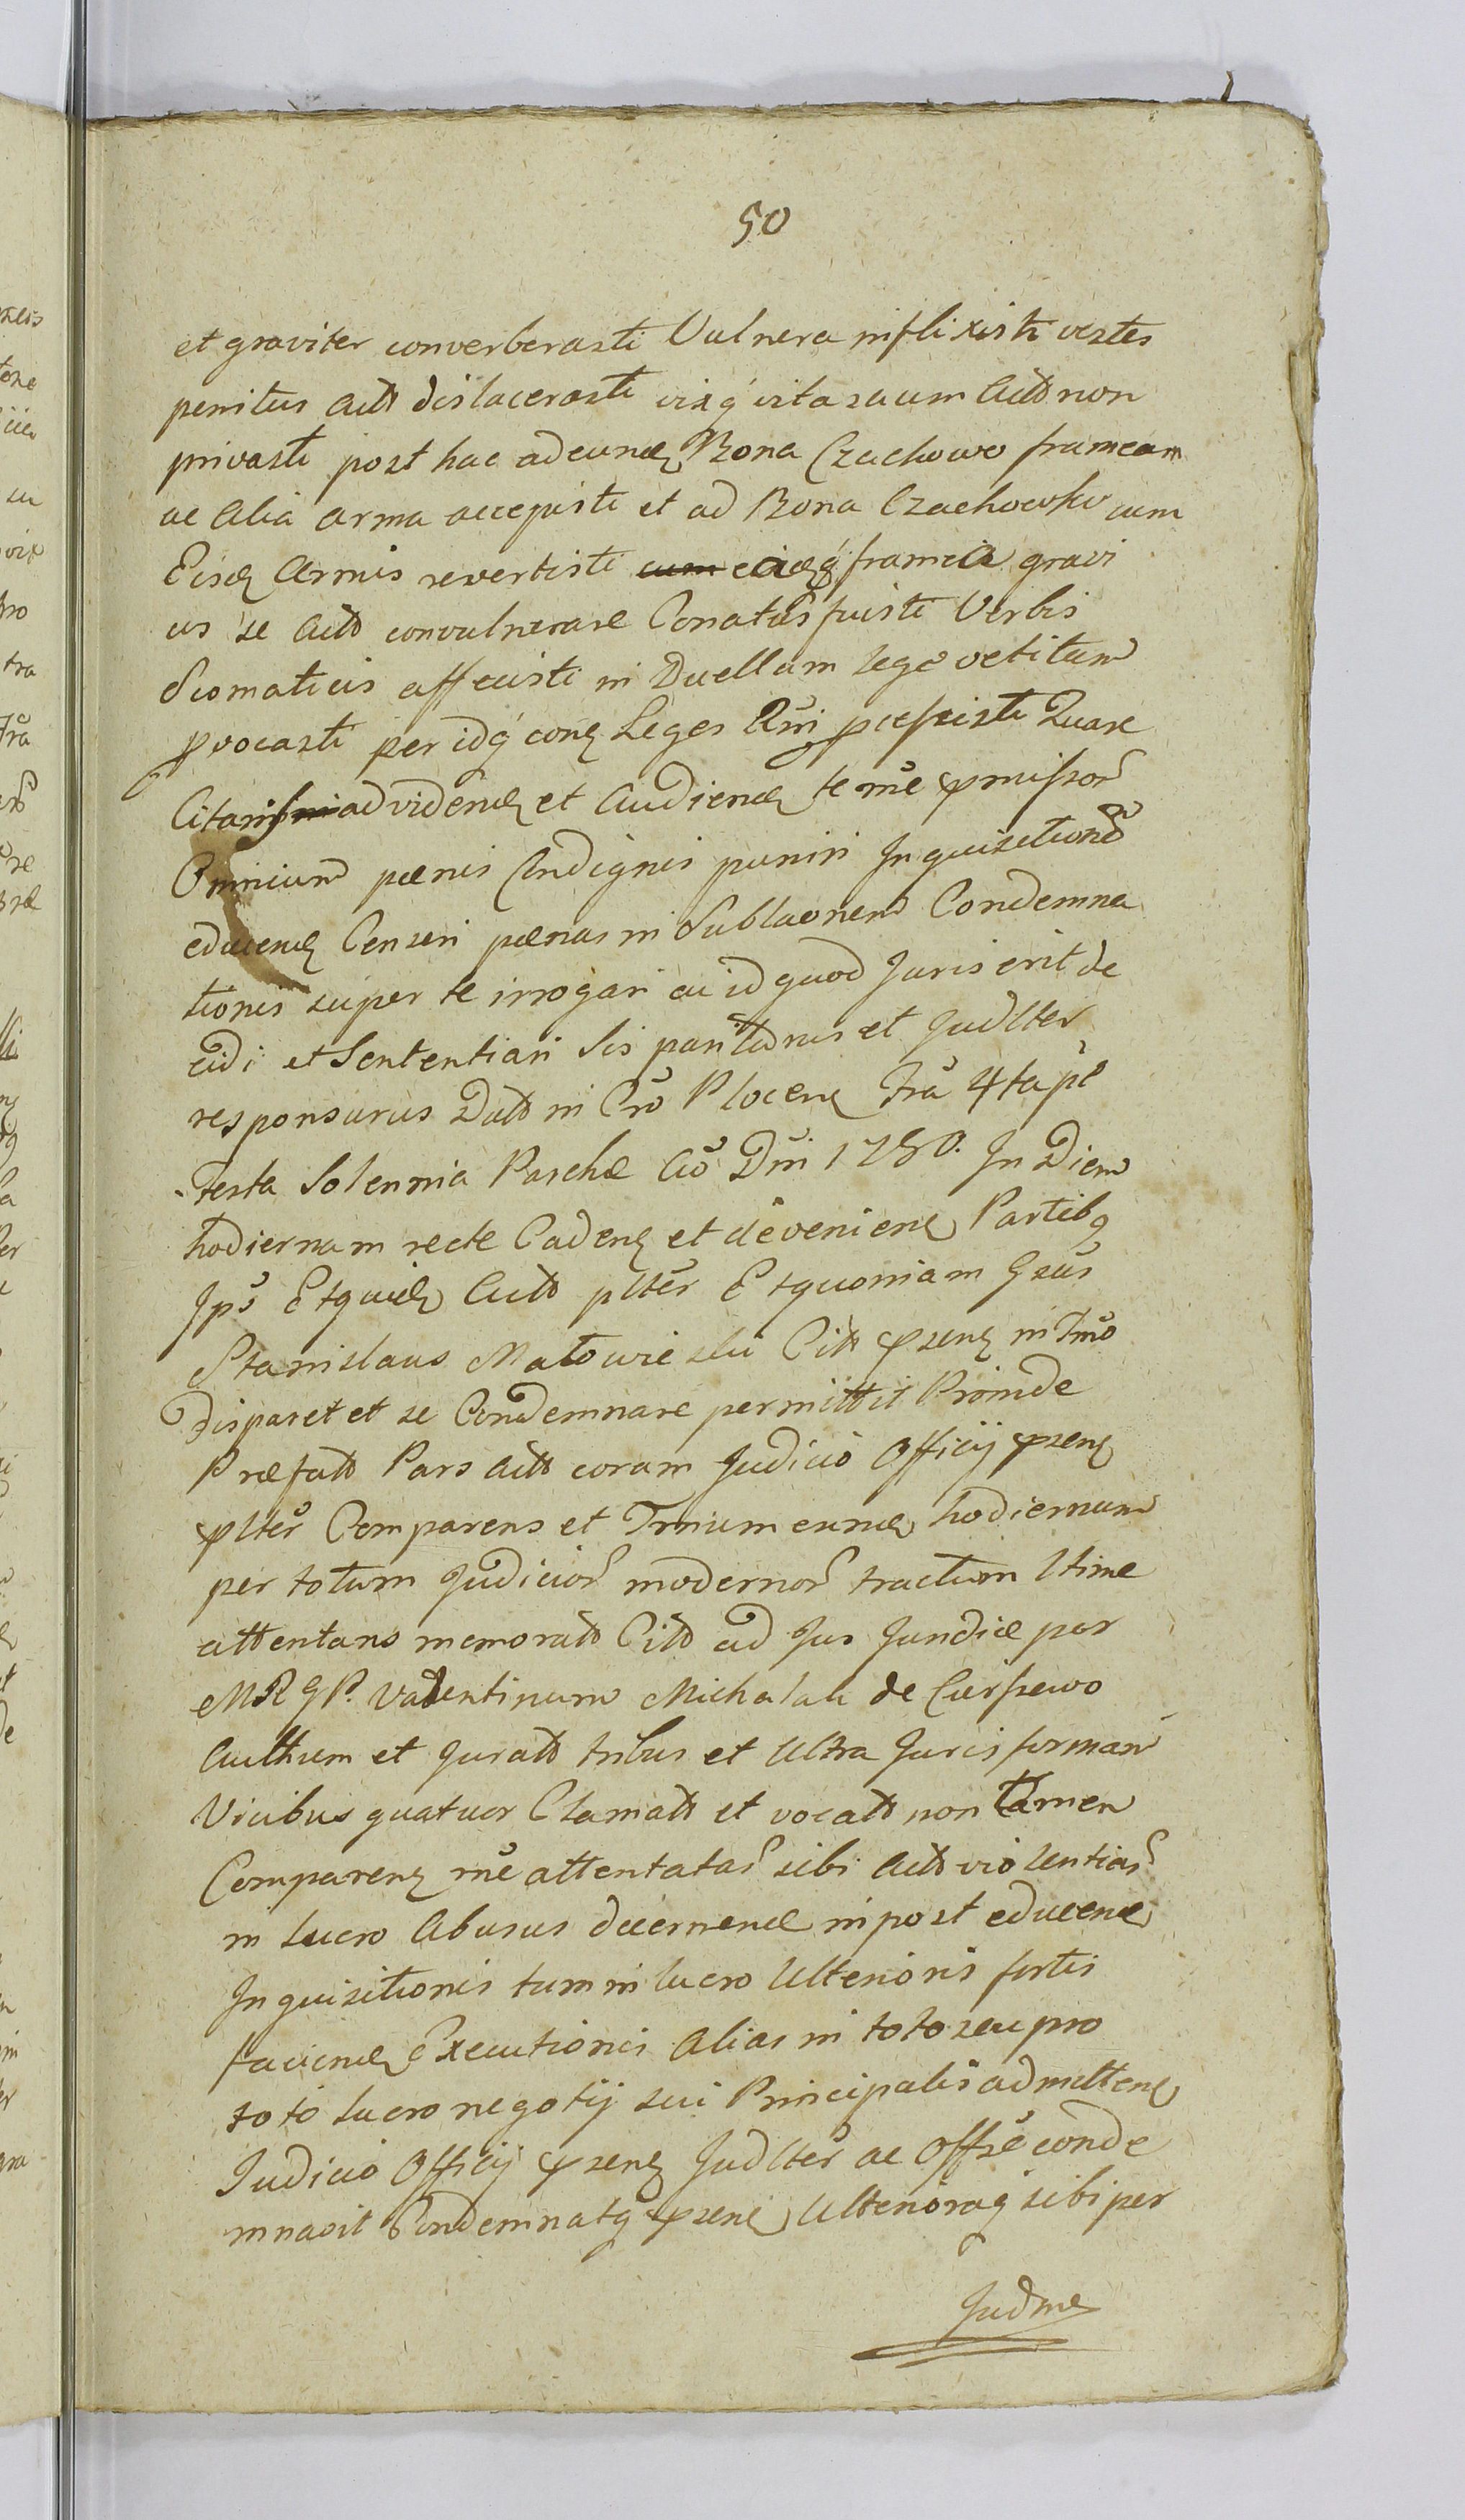 50
et graviter converberasti Vulnera inflixisti vestes
penitus Actt dislacerasti vixq vita suum Actt non
privasti post hac ad eund Bona Czachowo frameam
ac Alia arma accepisti et ad Bona Czachowko cum
Eisd Armis revertisti cum eadq framea gravi
us se Actt convulnerare Conatus fuisti Verbis
diomaticis affecisti in Duellum lege vetitum
pvocasti per idq conq Leges Rni peccisti Quare
Citaris ad vidend et Audiend te rne pmissor
Omnium pænis Condignis puniri Inquisitiond
educend Censeri pænas in Sublaonem Condemna
tionis super te irrogari ac id quod Juris erit de
cidi et Sententiari Sis pariturus et Judlter
responsurus Datt in Cro Plocen Fra 4ta pt
Festa Solennia Paschæ Ao Dni 1780. In Diem
hodiernam recte Caden et devenien Partibq
Ips Etquid Actt plter Etquoniam Gsus
Stanislaus Matowieski Citt psens in Tmo
disparet et se Condemnare permittit Proinde
Præfatt Pars Actt coram Judicio Officij psen
plter Comparens et Tminum eund hodiernum
per totum Judicior modernor tractum ltime
attentans memoratt Citt ad Jus Jundicæ per
MRGP. Valentinum Michalak de Cierszewo
Aulthum et Juratt tribus et Ultra Juris forman
Vicibus quatuor Clamatt et vocatt non tamen
Comparen rne attentatar sibi Actt violentiar
in lucro Abusus decernend inpost educend
Inquisitionis tum in lucro Ulterioris fortis
faciend Executionis Alias in toto seu pro
toto lucro negotij sui Principalis admitten
Judicio Officij psen Judlter ac Offse conde
mnavit Condemnatq psen Ulterioraq sibi per
Judme